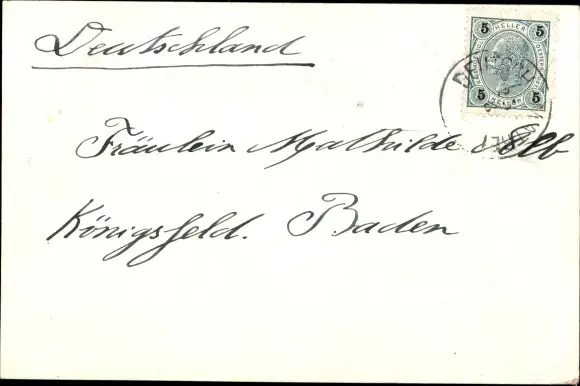 Deutschland
5 HELLER 5
5 HELLER 5
Fräulein Mathilde
Königsfeld. Baden